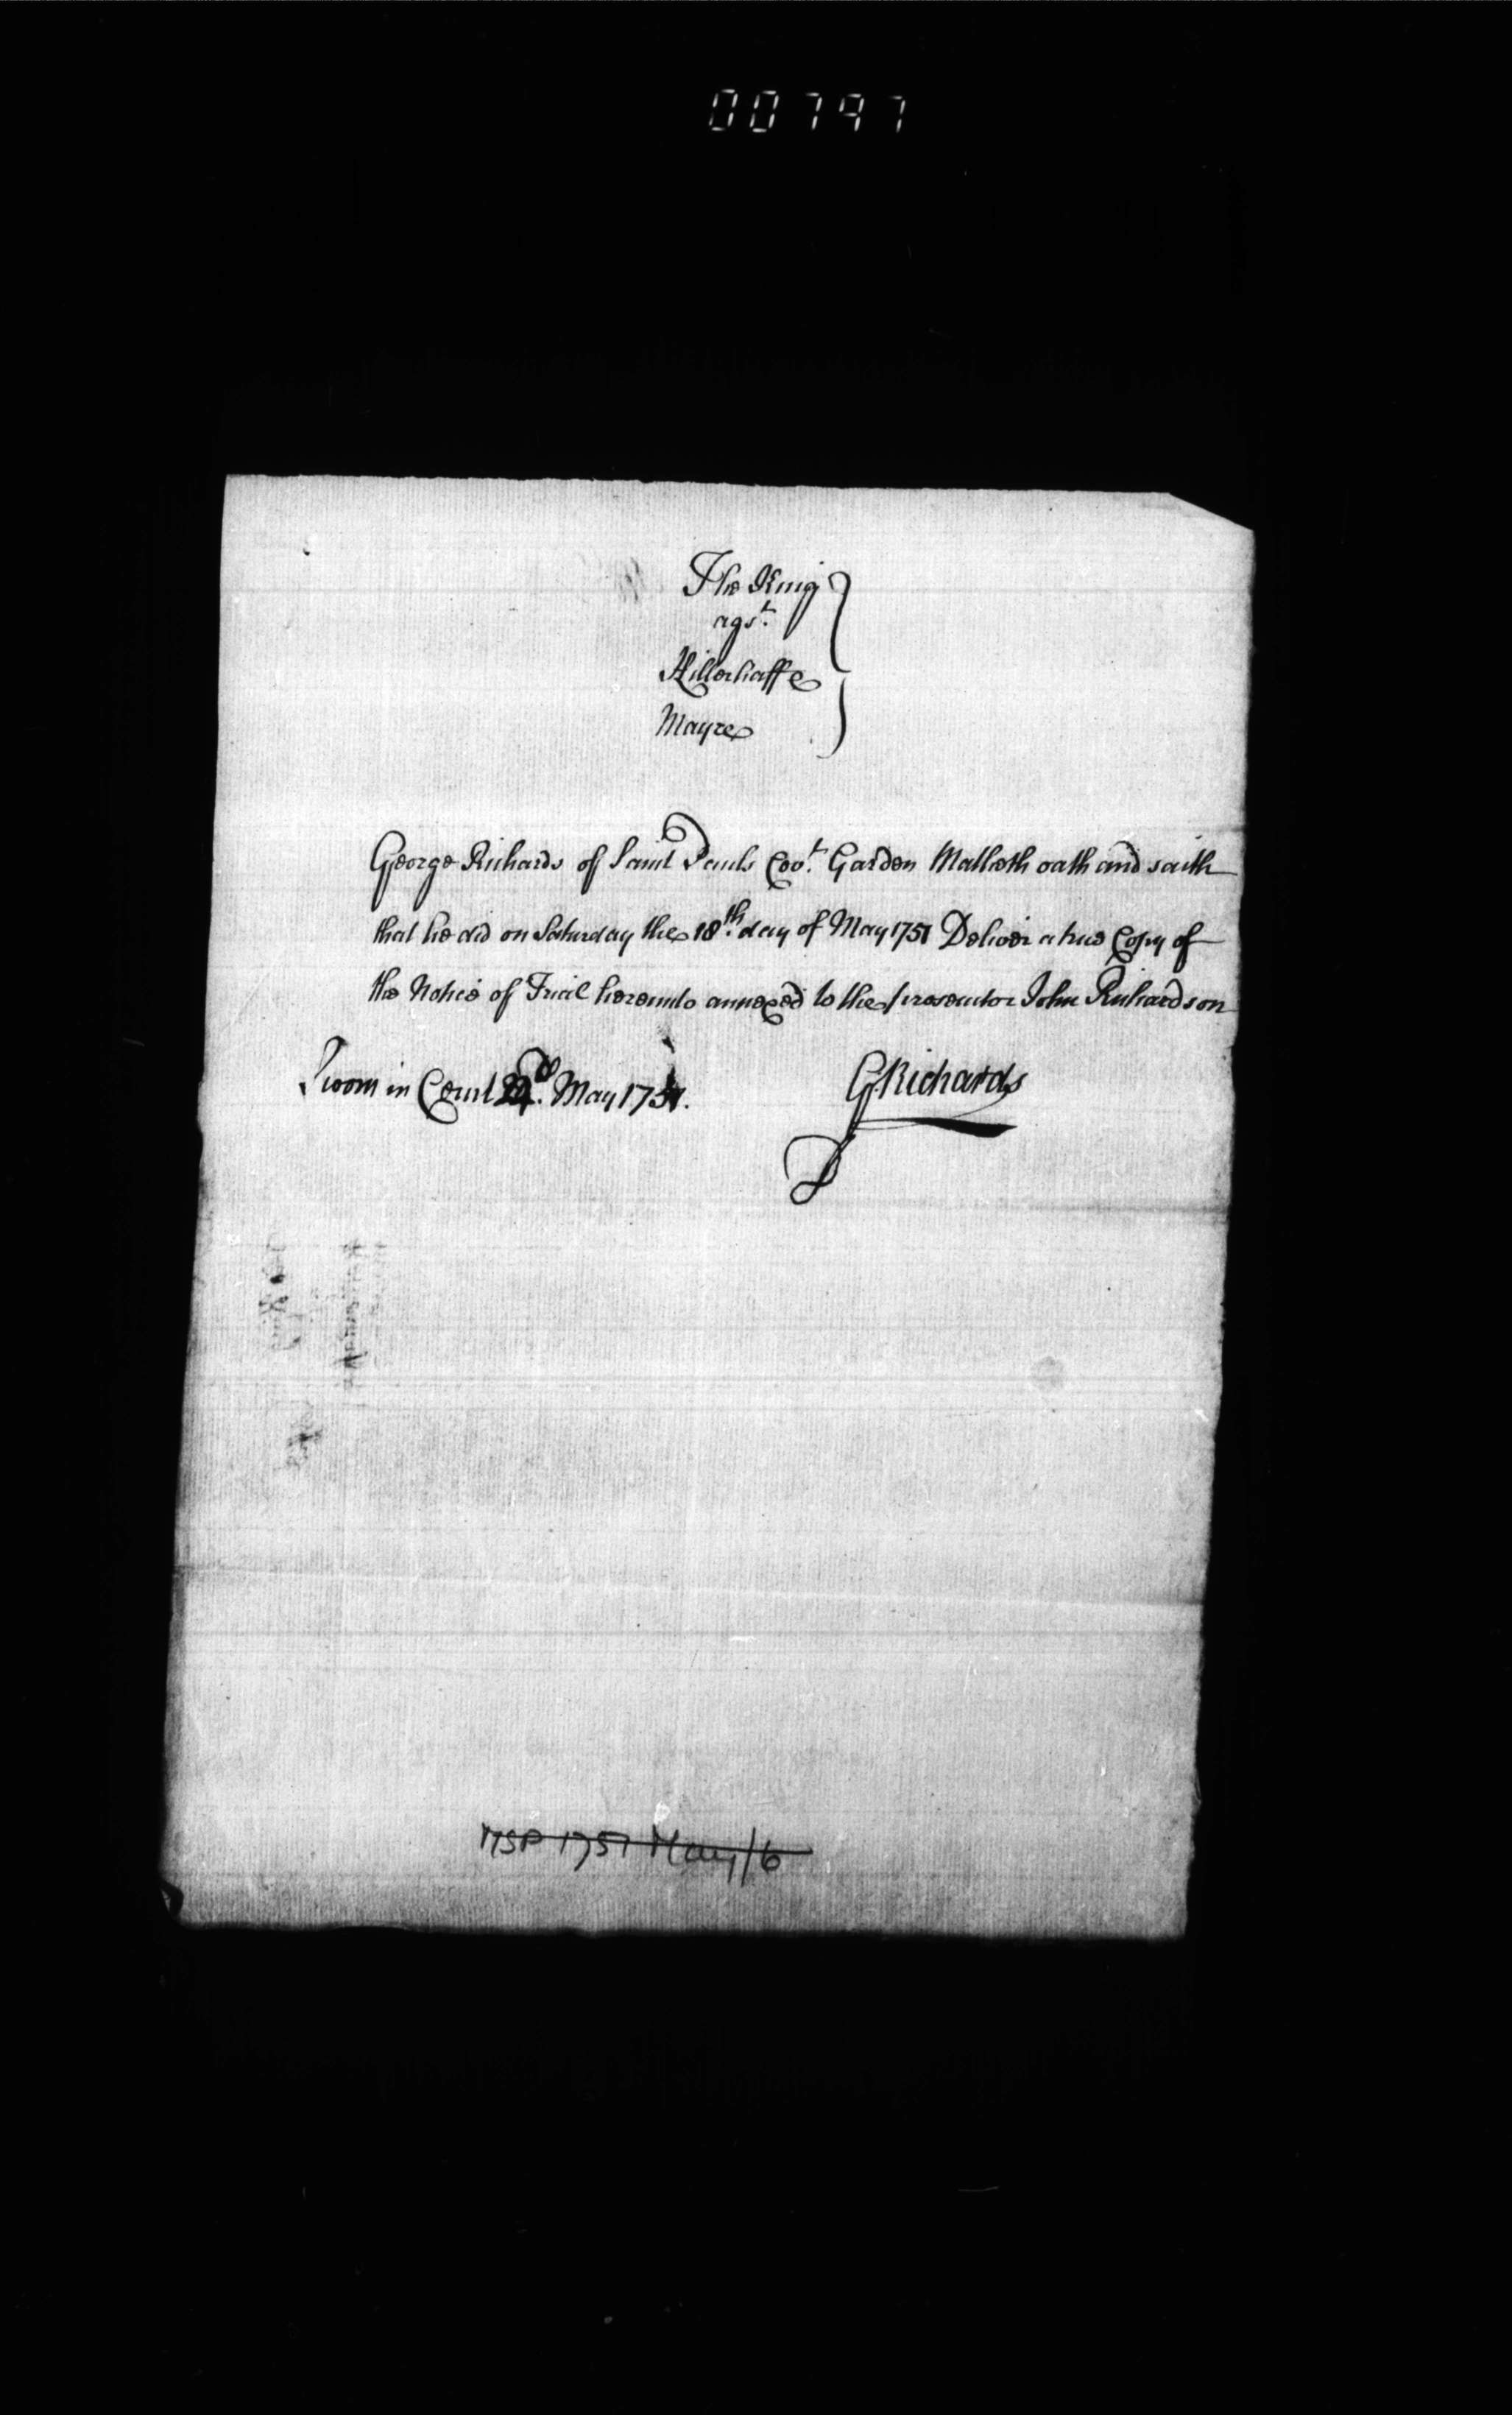 00797
The King
agst.
Hillerhaffe
Mayre
George Richards of Saint Pauls Covt. Garden Maketh oath and saith
that he did on Saturday the 18th. day of May 1751 Deliver a true Copy of
the Notice of Trial hereunto annexed to the prosecutor John Richardson
Sworn in Court 22d. May 1751.
GRichards
MSP 1751 May/6